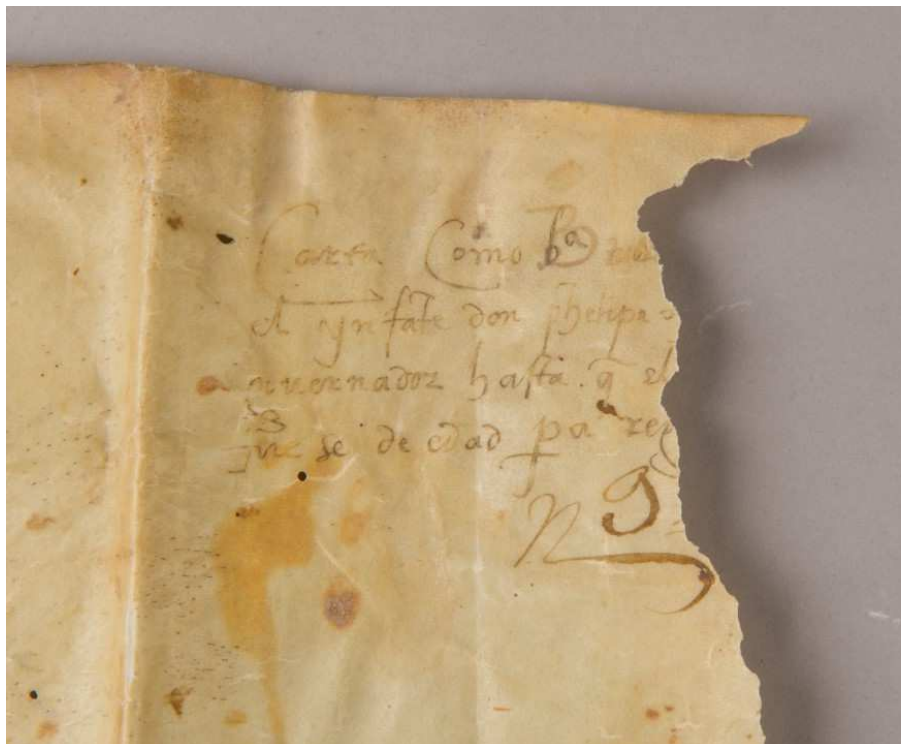 Carta Como
el ynfate don phelipe
governador hasta q̄ el
fuese de edad pa rey
N 9